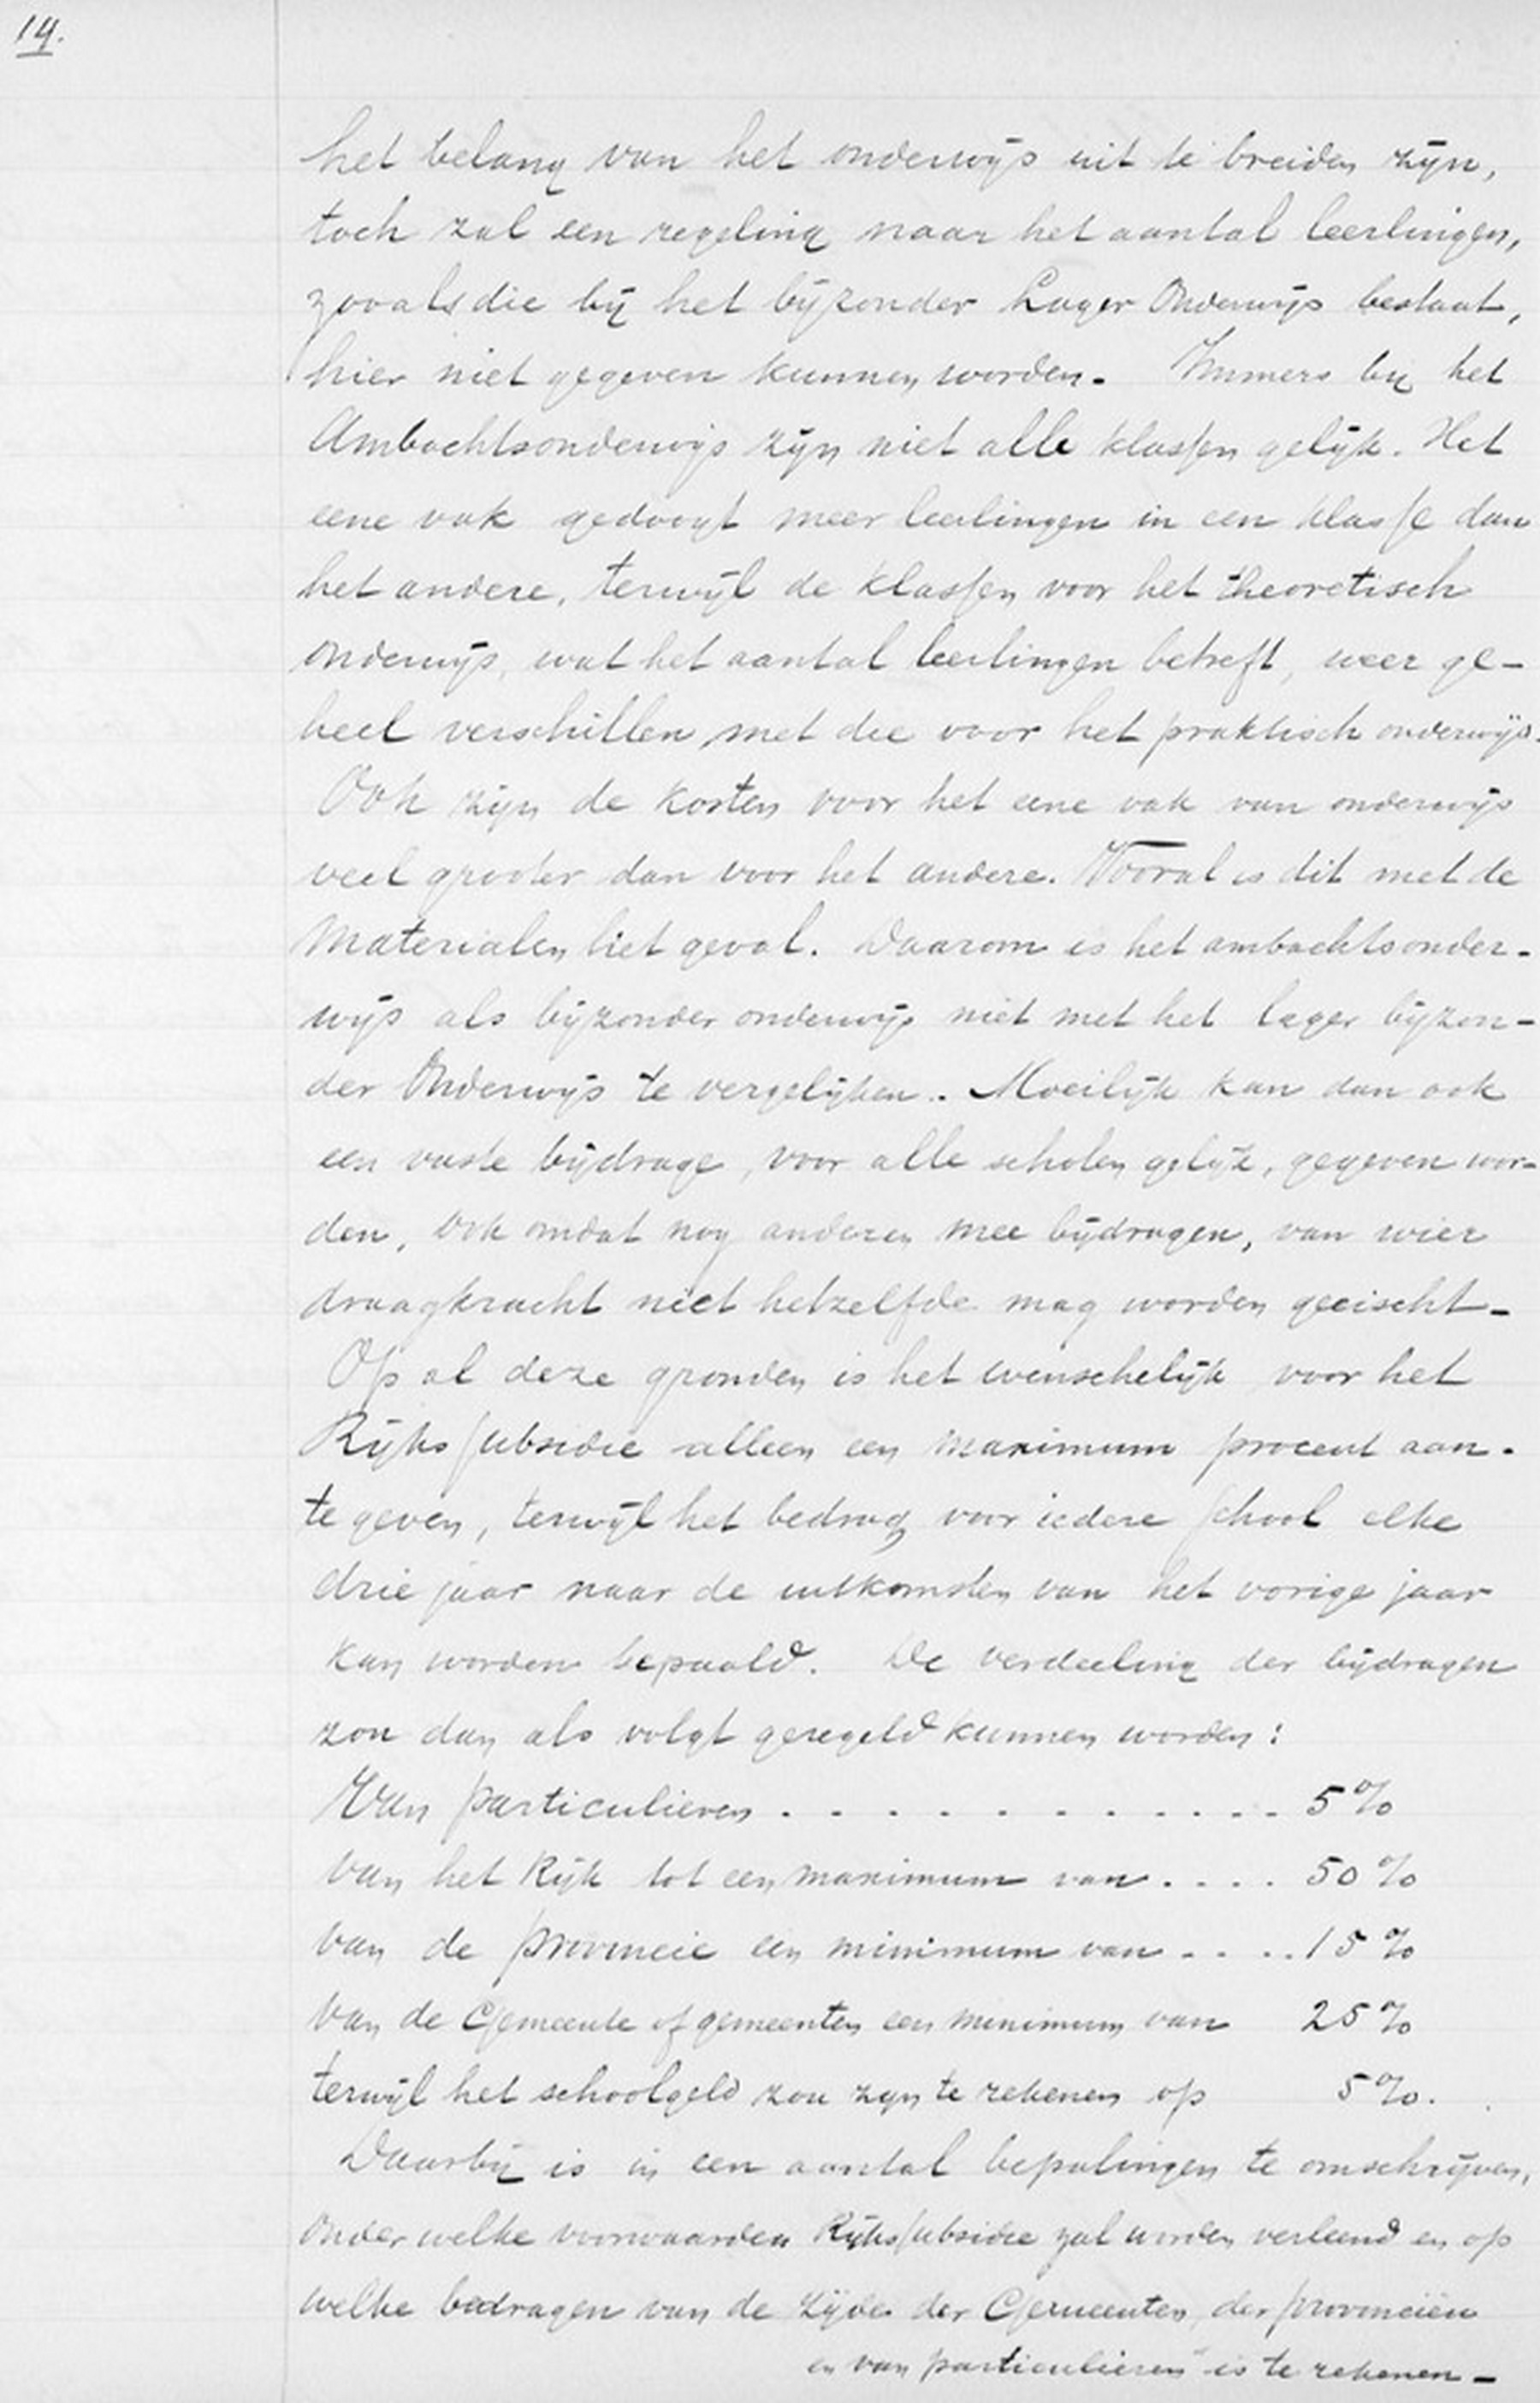 14.
het belang van het onderwijs uit te breiden zijn,
toch zal een regeling naar het aantal leerlingen,
zooals die bij het bijzonder Lager Onderwijs bestaat,
hier niet gegeven kunnen worden. Immers bij het
Ambachtsonderwijs zijn niet alle klassen gelijk. Het
eene vak gedoogt meer leerlingen in een klasse dan
het andere, terwijl de klassen voor het theoretisch
onderwijs, wat het aantal leerlingen betreft, weer ge-
heel verschillen met die voor het praktisch onderwijs.
Ook zijn de kosten voor het eene vak van onderwijs
veel grooter dan voor het andere. Vooral is dit met de
Materialen het geval. Daarom is het ambachtsonder-
wijs als bijzonder onderwijs niet met het lager bijzon-
der Onderwijs te vergelijken. Moeilijk kan dan ook
een vaste bijdrage, voor alle scholen gelijk, gegeven wor-
den, ook omdat nog anderen mee bijdragen, van wier
draagkracht niet hetzelfde mag worden geeischt.
Op al deze gronden is het wenschelijk voor het
Rijks subsidie alleen een maximum procent aan-
te geven, terwijl het bedrag voor iedere school elke
drie jaar naar de uitkomsten van het vorige jaar
kan worden bepaald. De verdeeling der bijdragen
zou dan als volgt geregeld kunnen worden:
Van particulieren . . . . . . . . . . . 5%
Van het Rijk tot een maximum van . . . . 50%
van de provincie een minimum van . . . . 15%
Van de Gemeente of gemeenten een minimum van 25%
terwijl het schoolgeld zou zijn te rekenen op 5%.
Daarbij is in een aantal bepalingen te omschrijven,
onder welke voorwaarden Rijkssubsidie zal worden verleend en op
welke bedragen van de zijde der Gemeenten, der provinciën
en van particulieren is te rekenen-